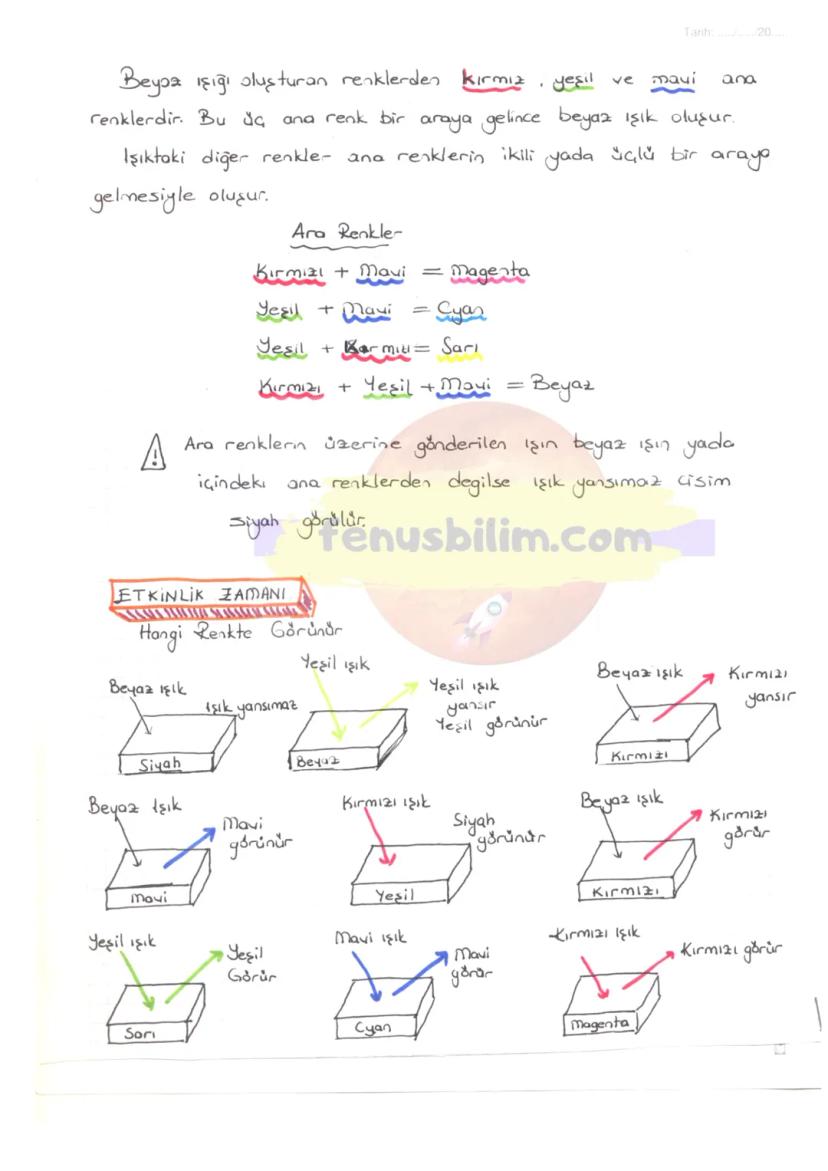 Tarih: ...../...../20.....
Beyaz ışığı oluşturan renklerden kırmız, yeşil ve mavi ana
renklerdir. Bu üç ana renk bir araya gelince beyaz ışık oluşur.
Işıktaki diğer renkler ana renklerin ikili yada üçlü bir araya
gelmesiyle oluşur.
Ara Renkler
Kırmızı + Mavi = Magenta
Yeşil + Mavi = Cyan
Yeşil + Kırmızı = Sarı
Kırmızı + Yeşil + Mavi = Beyaz
Ara renklerin üzerine gönderilen ışın beyaz ışın yada
içindeki ana renklerden degilse ışık yansımaz cisim
siyah görülür.
fenusbilim.com
ETKİNLİK ZAMANI
Hangi Renkte Görünür
Beyaz ışık
Işık yansımaz
Siyah
Yeşil ışık
Yeşil ışık
yansır
Yeşil görünür
Beyaz
Beyaz ışık
Kırmızı
yansır
Kırmızı
Beyaz Işık
Mavi
görünür
Mavi
Kırmızı ışık
Siyah
görünür
Yeşil
Beyaz ışık
Kırmızı
görür
Kırmızı
Yeşil ışık
Yeşil
Görür
Sarı
Mavi ışık
Mavi
görür
Cyan
Kırmızı ışık
Kırmızı görür
Magenta